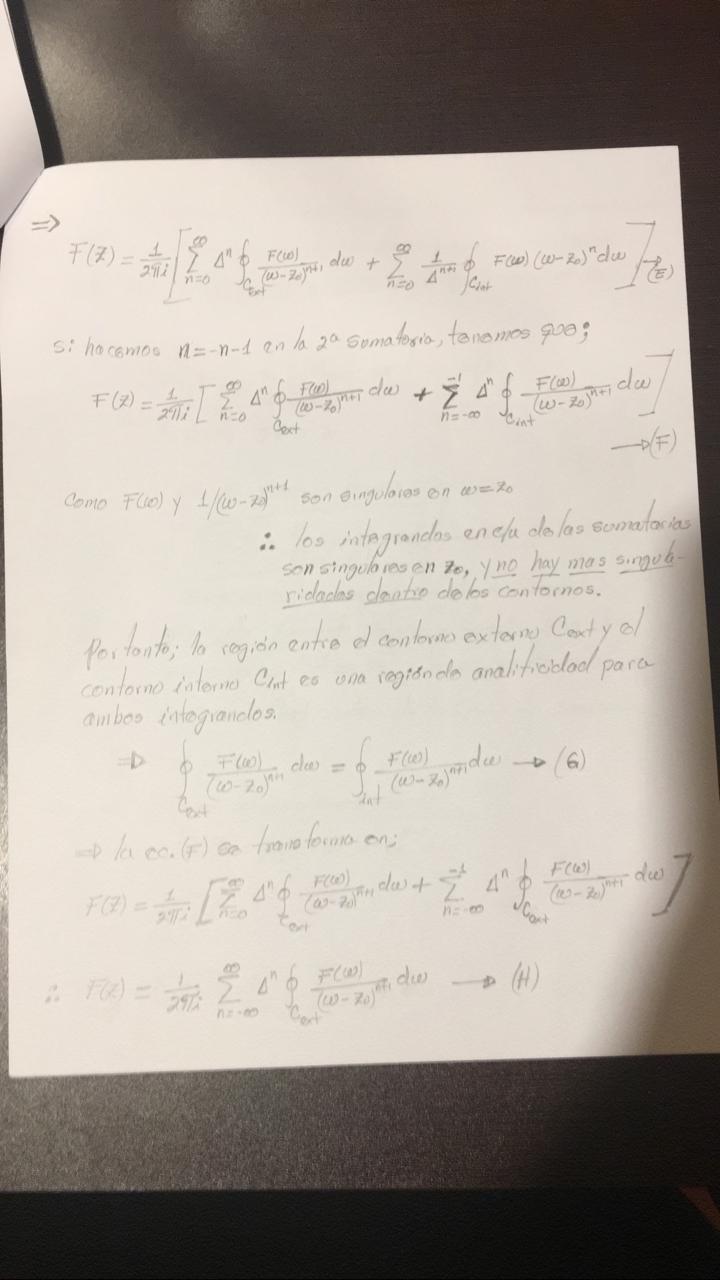 ⇒
F(z) = 1/2πi [ ∑_{n=0}^{∞} Δ^n ∮_{Cext} F(ω)/(ω-z₀)^{n+1} dω + ∑_{n=0}^{∞} 1/Δ^{n+1} ∮_{Cint} F(ω) (ω-z₀)^n dω ] → (E)
si hacemos n=-n-1 en la 2ª sumatoria, tenemos que;
F(z) = 1/2πi [ ∑_{n=0}^{∞} Δ^n ∮_{Cext} F(ω)/(ω-z₀)^{n+1} dω + ∑_{n=-∞}^{-1} Δ^n ∮_{Cint} F(ω)/(ω-z₀)^{n+1} dω ]
→ (F)
Como F(ω) y 1/(ω-z₀)^{n+1} son singulares en ω=z₀
∴ los integrandos en c/u de las sumatorias
son singulares en z₀, y no hay mas singula-
ridades dentro de los contornos.
Por tanto; la región entre el contorno externo Cext y el
contorno interno Cint es una región de analiticidad para
ambos integrandos.
⇒ ∮_{Cext} F(ω)/(ω-z₀)^{n+1} dω = ∮_{int} F(ω)/(ω-z₀)^{n+1} dω → (G)
⇒ la ec. (F) se transforma en;
F(z) = 1/2πi [ ∑_{n=0}^{∞} Δ^n ∮_{Cext} F(ω)/(ω-z₀)^{n+1} dω + ∑_{n=-∞}^{-1} Δ^n ∮_{Cext} F(ω)/(ω-z₀)^{n+1} dω ]
∴ F(z) = 1/2πi ∑_{n=-∞}^{∞} Δ^n ∮_{Cext} F(ω)/(ω-z₀)^{n+1} dω → (H)